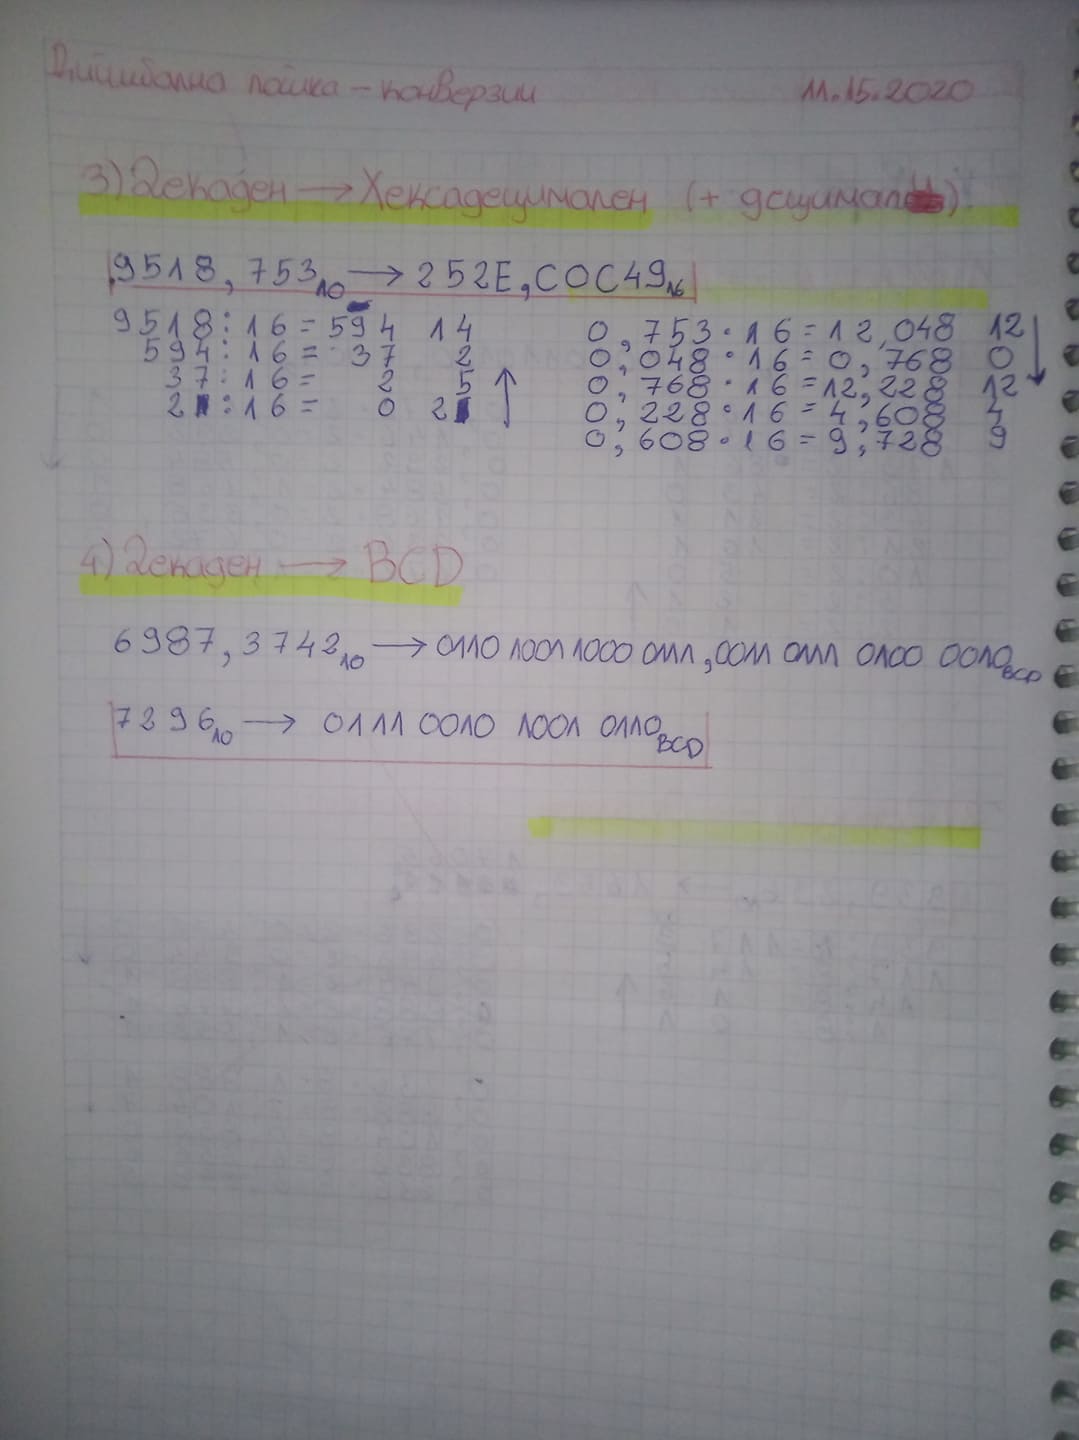 Дигитална логика – конверзии 11.15.2020
3) Декаден → Хексадецимален (+ децимали)
9518,753₁₀ → 252E,C0C49₁₆
9518:16=594 14 0,753·16=12,048 12
594:16= 37 2 0,048·16=0,768 0
37:16= 2 5 0,768·16=12,228 12
2:16= 0 2 0,228·16=4,608 4
0,608·16=9,728 9
4) Декаден → BCD
6987,3742₁₀ → 0110 1001 1000 0111,0011 0111 0100 0010 BCD
7296₁₀ → 0111 0010 1001 0110 BCD